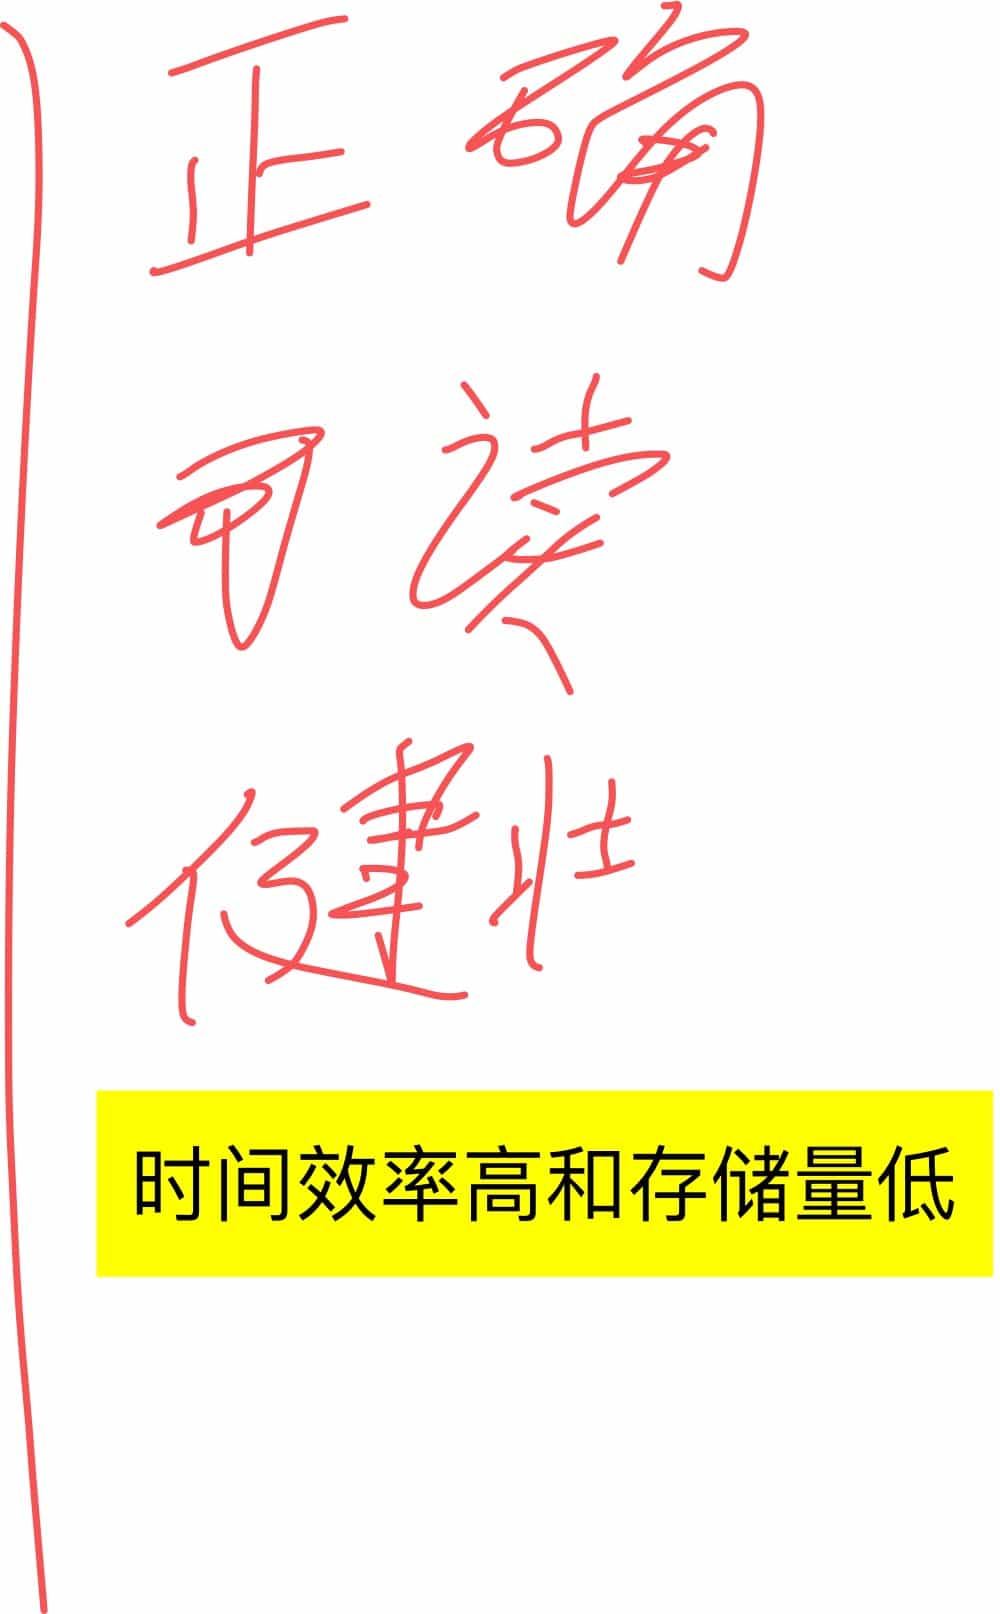 正确
可读
健壮
时间效率高和存储量低